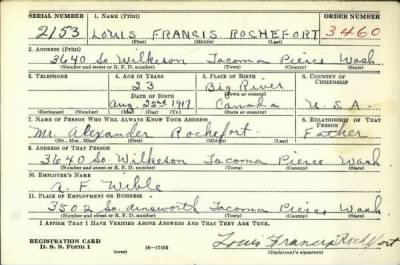 SERIAL NUMBER 1. NAME (Print) ORDER NUMBER
2153 LOUIS FRANCIS ROCHEFORT 3460
(First) (Middle) (Last)
2. ADDRESS (Print)
3640 So. Wilkeson Tacoma Pierce Wash
(Number and street or R. F. D. number) (Town) (County) (State)
3. TELEPHONE 4. AGE IN YEARS 5. PLACE OF BIRTH 6. COUNTRY OF CITIZENSHIP
23 Big River
DATE OF BIRTH (Town or county)
Aug. 22nd 1917 Canada U.S.A.
(Exchange) (Number) (Mo.) (Day) (Yr.) (State or country)
7. NAME OF PERSON WHO WILL ALWAYS KNOW YOUR ADDRESS 8. RELATIONSHIP OF THAT PERSON
Mr. Alexander Rochefort. Father
(Mr., Mrs., Miss) (First) (Middle) (Last)
9. ADDRESS OF THAT PERSON
3640 So. Wilkeson Tacoma Pierce Wash
(Number and street or R. F. D. number) (Town) (County) (State)
10. EMPLOYER'S NAME
A. F. Wible
11. PLACE OF EMPLOYMENT OR BUSINESS
3502 So. Ainsworth Tacoma Pierce Wash.
(Number and street or R. F. D. number) (Town) (County) (State)
I AFFIRM THAT I HAVE VERIFIED ABOVE ANSWERS AND THAT THEY ARE TRUE.
REGISTRATION CARD
D. S. S. Form 1 16—17105 Louis Francis Rochefort
(over) (Registrant's signature)